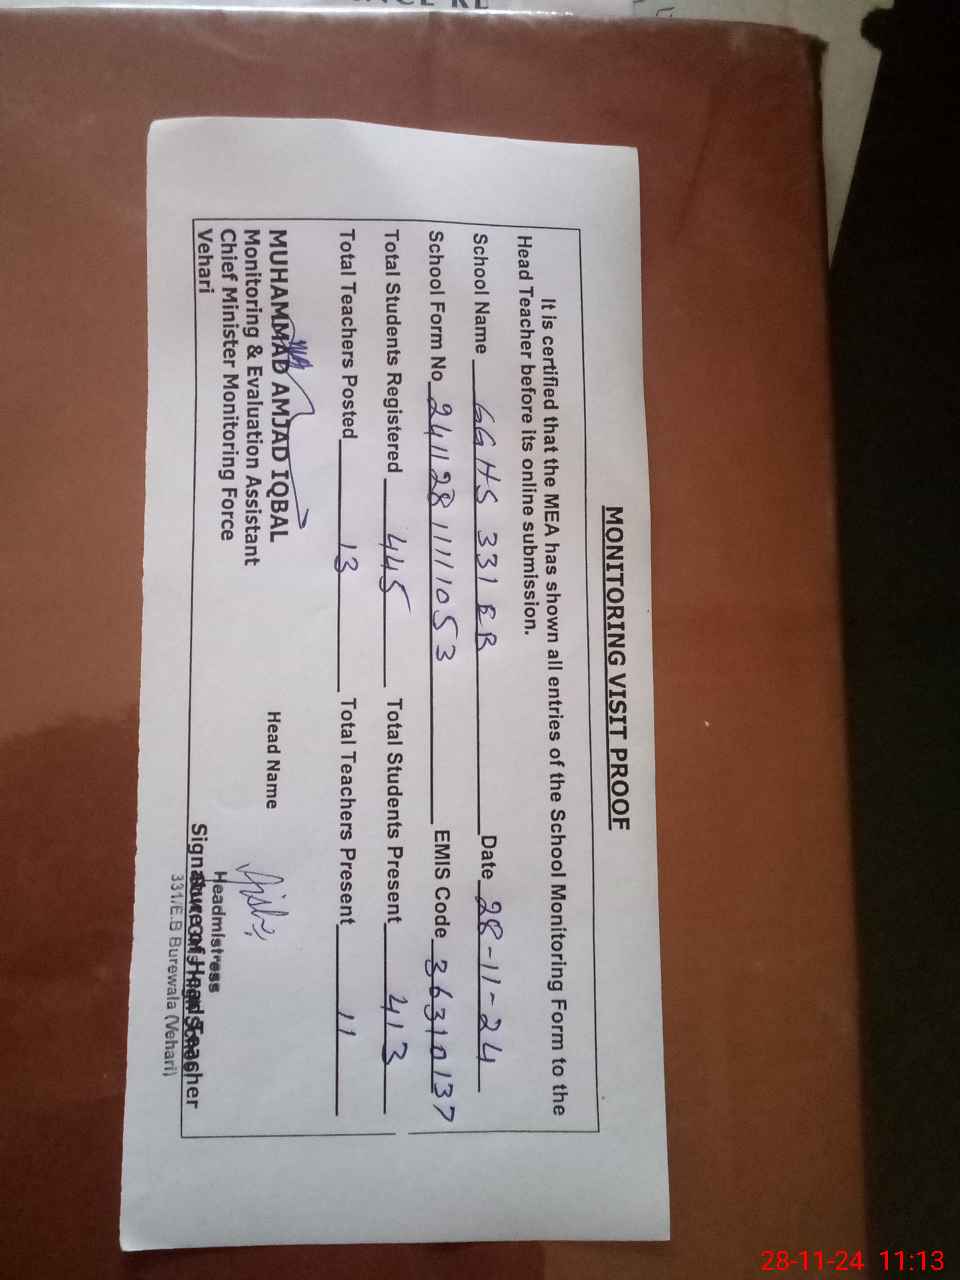 MONITORING VISIT PROOF
It is certified that the MEA has shown all entries of the School Monitoring Form to the
Head Teacher before its online submission.
School Name GGHS 331 EB Date 28-11-24
School Form No 241128111111053 EMIS Code 36310137
Total Students Registered 445 Total Students Present 413
Total Teachers Posted 13 Total Teachers Present 11
MUHAMMAD AMJAD IQBAL Head Name
Monitoring & Evaluation Assistant
Chief Minister Monitoring Force
Vehari
Headmistress
Signature of Head Teacher
331/E.B Burewala (Vehari)
28-11-24 11:13